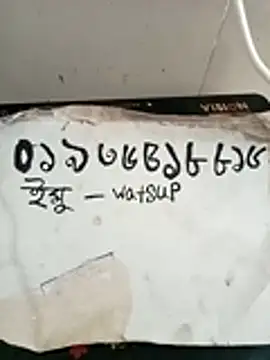 VISION
০১৯৩৫৪১৮৮১৫
ইমু - watsup